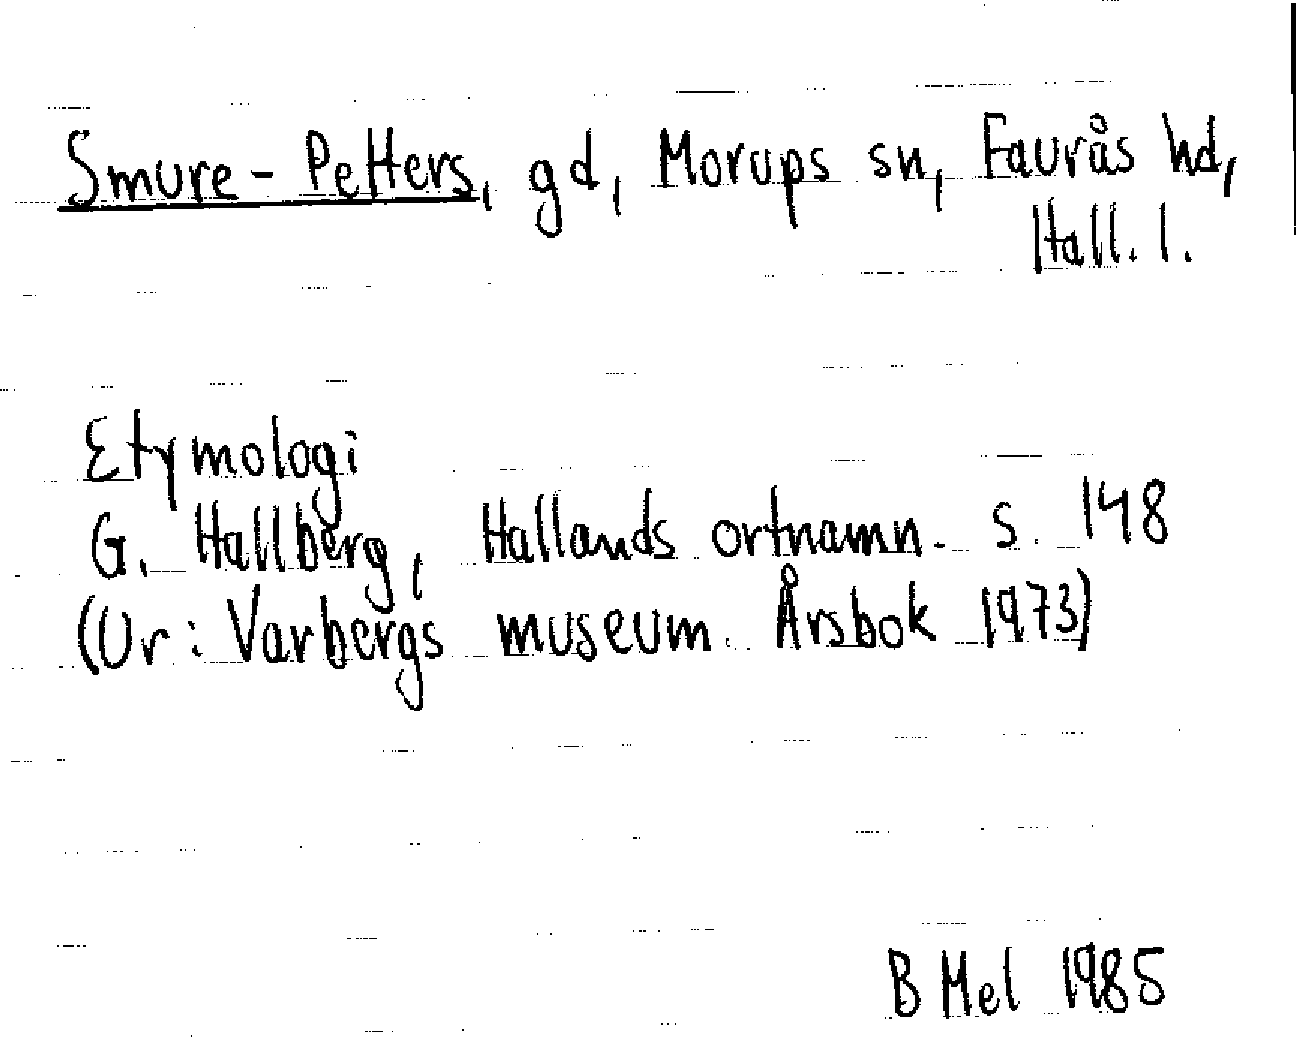 Smure-Petters, gd, Morups sn, Faurås hd,
Hall. l.
Etymologi
G. Hallberg, Hallands ortnamn. s. 148
(Ur: Varbergs museum. Årsbok 1973)
B Mel 1985